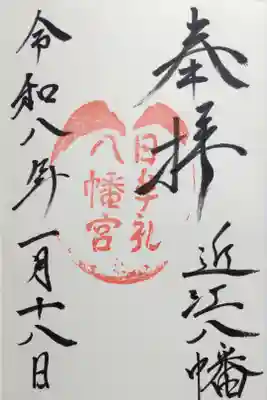 奉拝
近江八幡
日牟礼
八幡宮
令和八年一月十八日